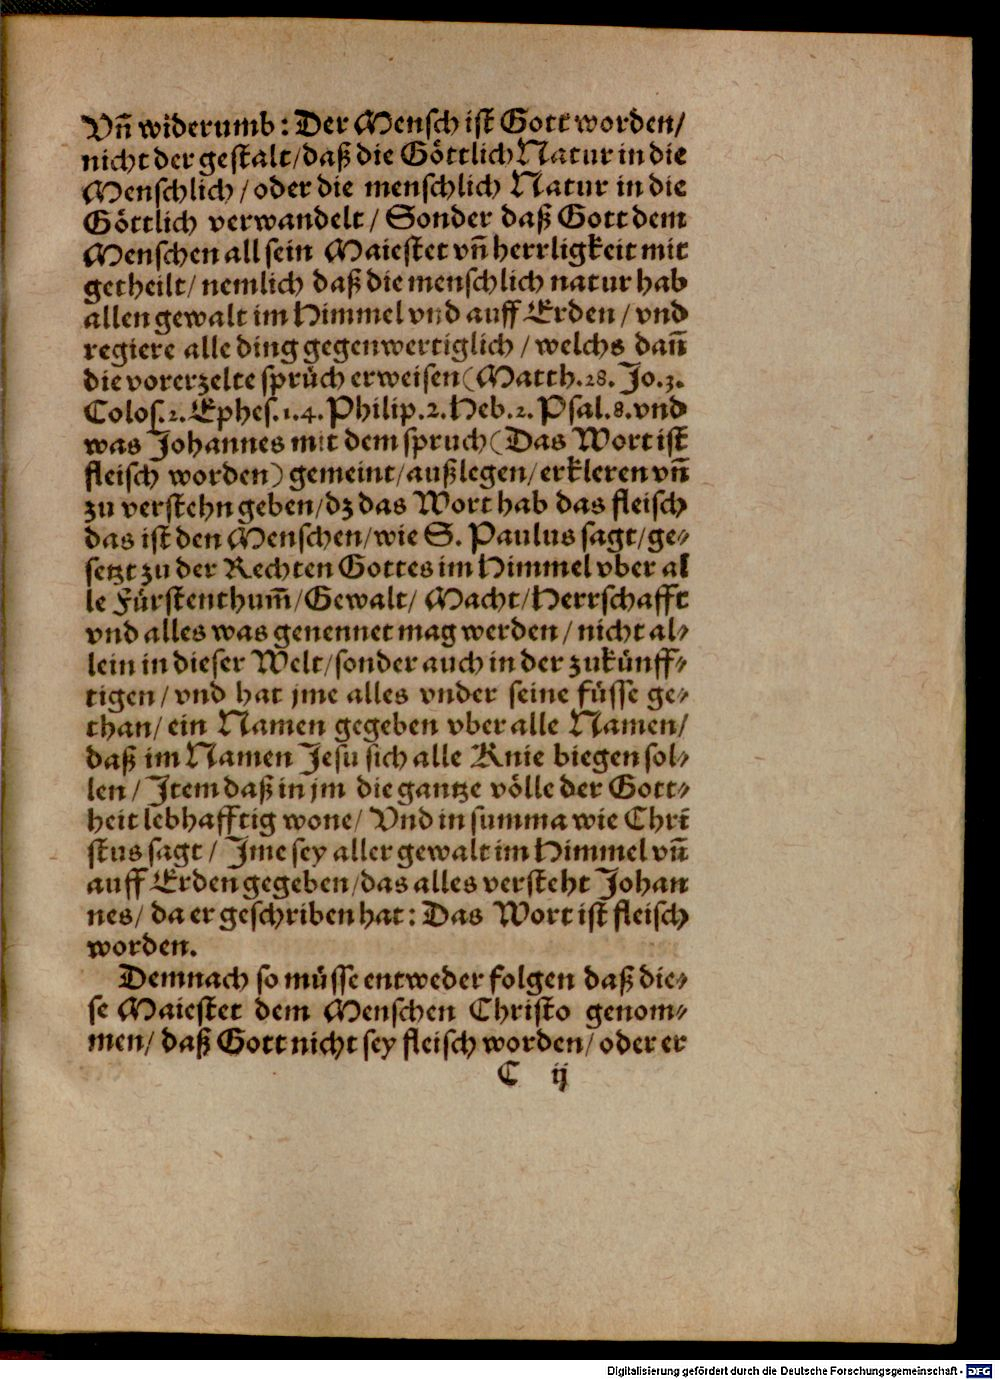 Vñ widerumb: Der Mensch ist Gott worden/
nicht der gestalt/daß die Göttlich Natur in die
Menschlich/oder die menschlich Natur in die
Göttlich verwandelt/Sonder daß Gott dem
Menschen all sein Maiestet vñ herrligkeit mit
getheilt/nemlich daß die menschlich natur hab
allen gewalt im Himmel vnd auff Erden/vnd
regiere alle ding gegenwertiglich/welchs dañ
die vorerzelte sprüch erweisen(Matth.28. Jo.3.
Colos.2. Ephes.1.4. Philip.2. Heb.2. Psal.8. vnd
was Johannes mit dem spruch(Das Wort ist
fleisch worden) gemeint/außlegen/erkleren vñ
zu verstehn geben/dz das Wort hab das fleisch
das ist den Menschen/wie S. Paulus sagt/ge-
setzt zu der Rechten Gottes im Himmel vber al
le Fürstenthum̃/Gewalt/Macht/Herrschafft
vnd alles was genennet mag werden/nicht al-
lein in dieser Welt/sonder auch in der zukünff-
tigen/vnd hat jme alles vnder seine füsse ge-
than/ein Namen gegeben vber alle Namen/
daß im Namen Jesu sich alle Knie biegen sol-
len/Item daß in jm die gantze völle der Gott-
heit lebhafftig wone/Vnd in summa wie Chri
stus sagt/Jme sey aller gewalt im Himmel vñ
auff Erden gegeben/das alles versteht Johan
nes/da er geschriben hat: Das Wort ist fleisch
worden.
Demnach so müsse entweder folgen daß die-
se Maiestet dem Menschen Christo genom-
men/daß Gott nicht sey fleisch worden/oder er
C ij
Digitalisierung gefördert durch die Deutsche Forschungsgemeinschaft - DFG